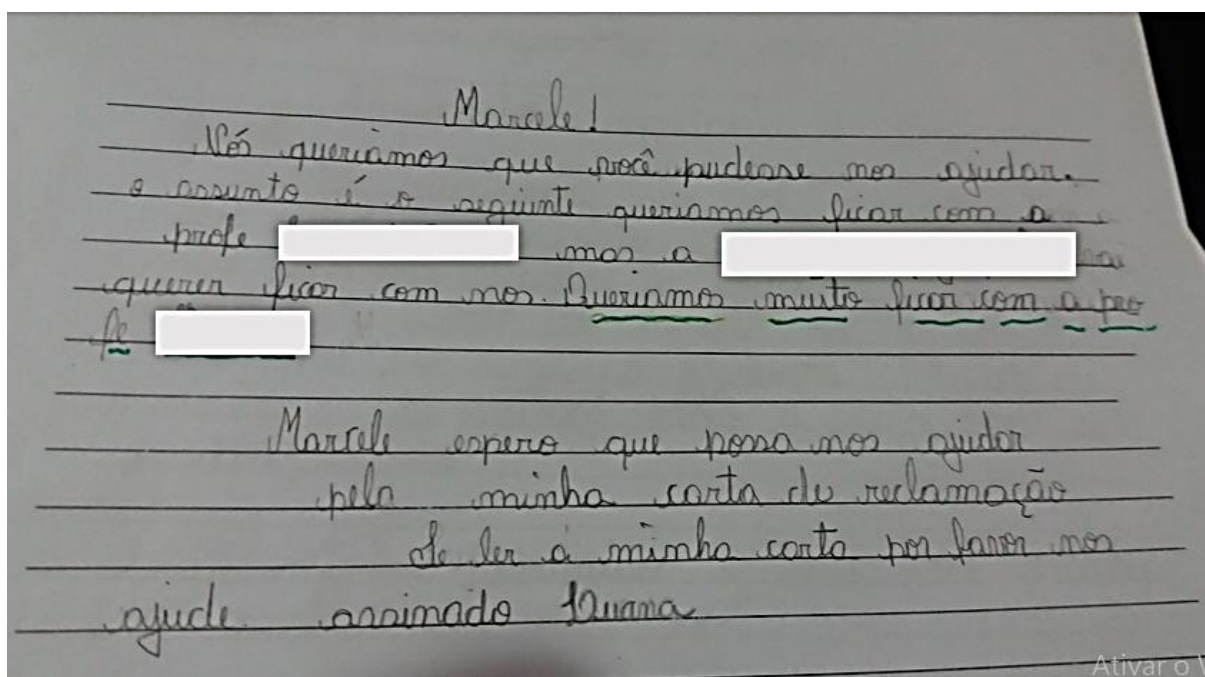 Marcele!
Nós queriamos que você pudesse nos ajudar.
o assunto é o seguinte queriamos ficar com a
profe mas a
querer ficar com nos. Queriamos muito ficar com a pro
fe
Marcele espero que possa nos ajudar
pela minha carta de reclamação
se ler a minha carta por favor nos
ajude. assinado
Ativar o